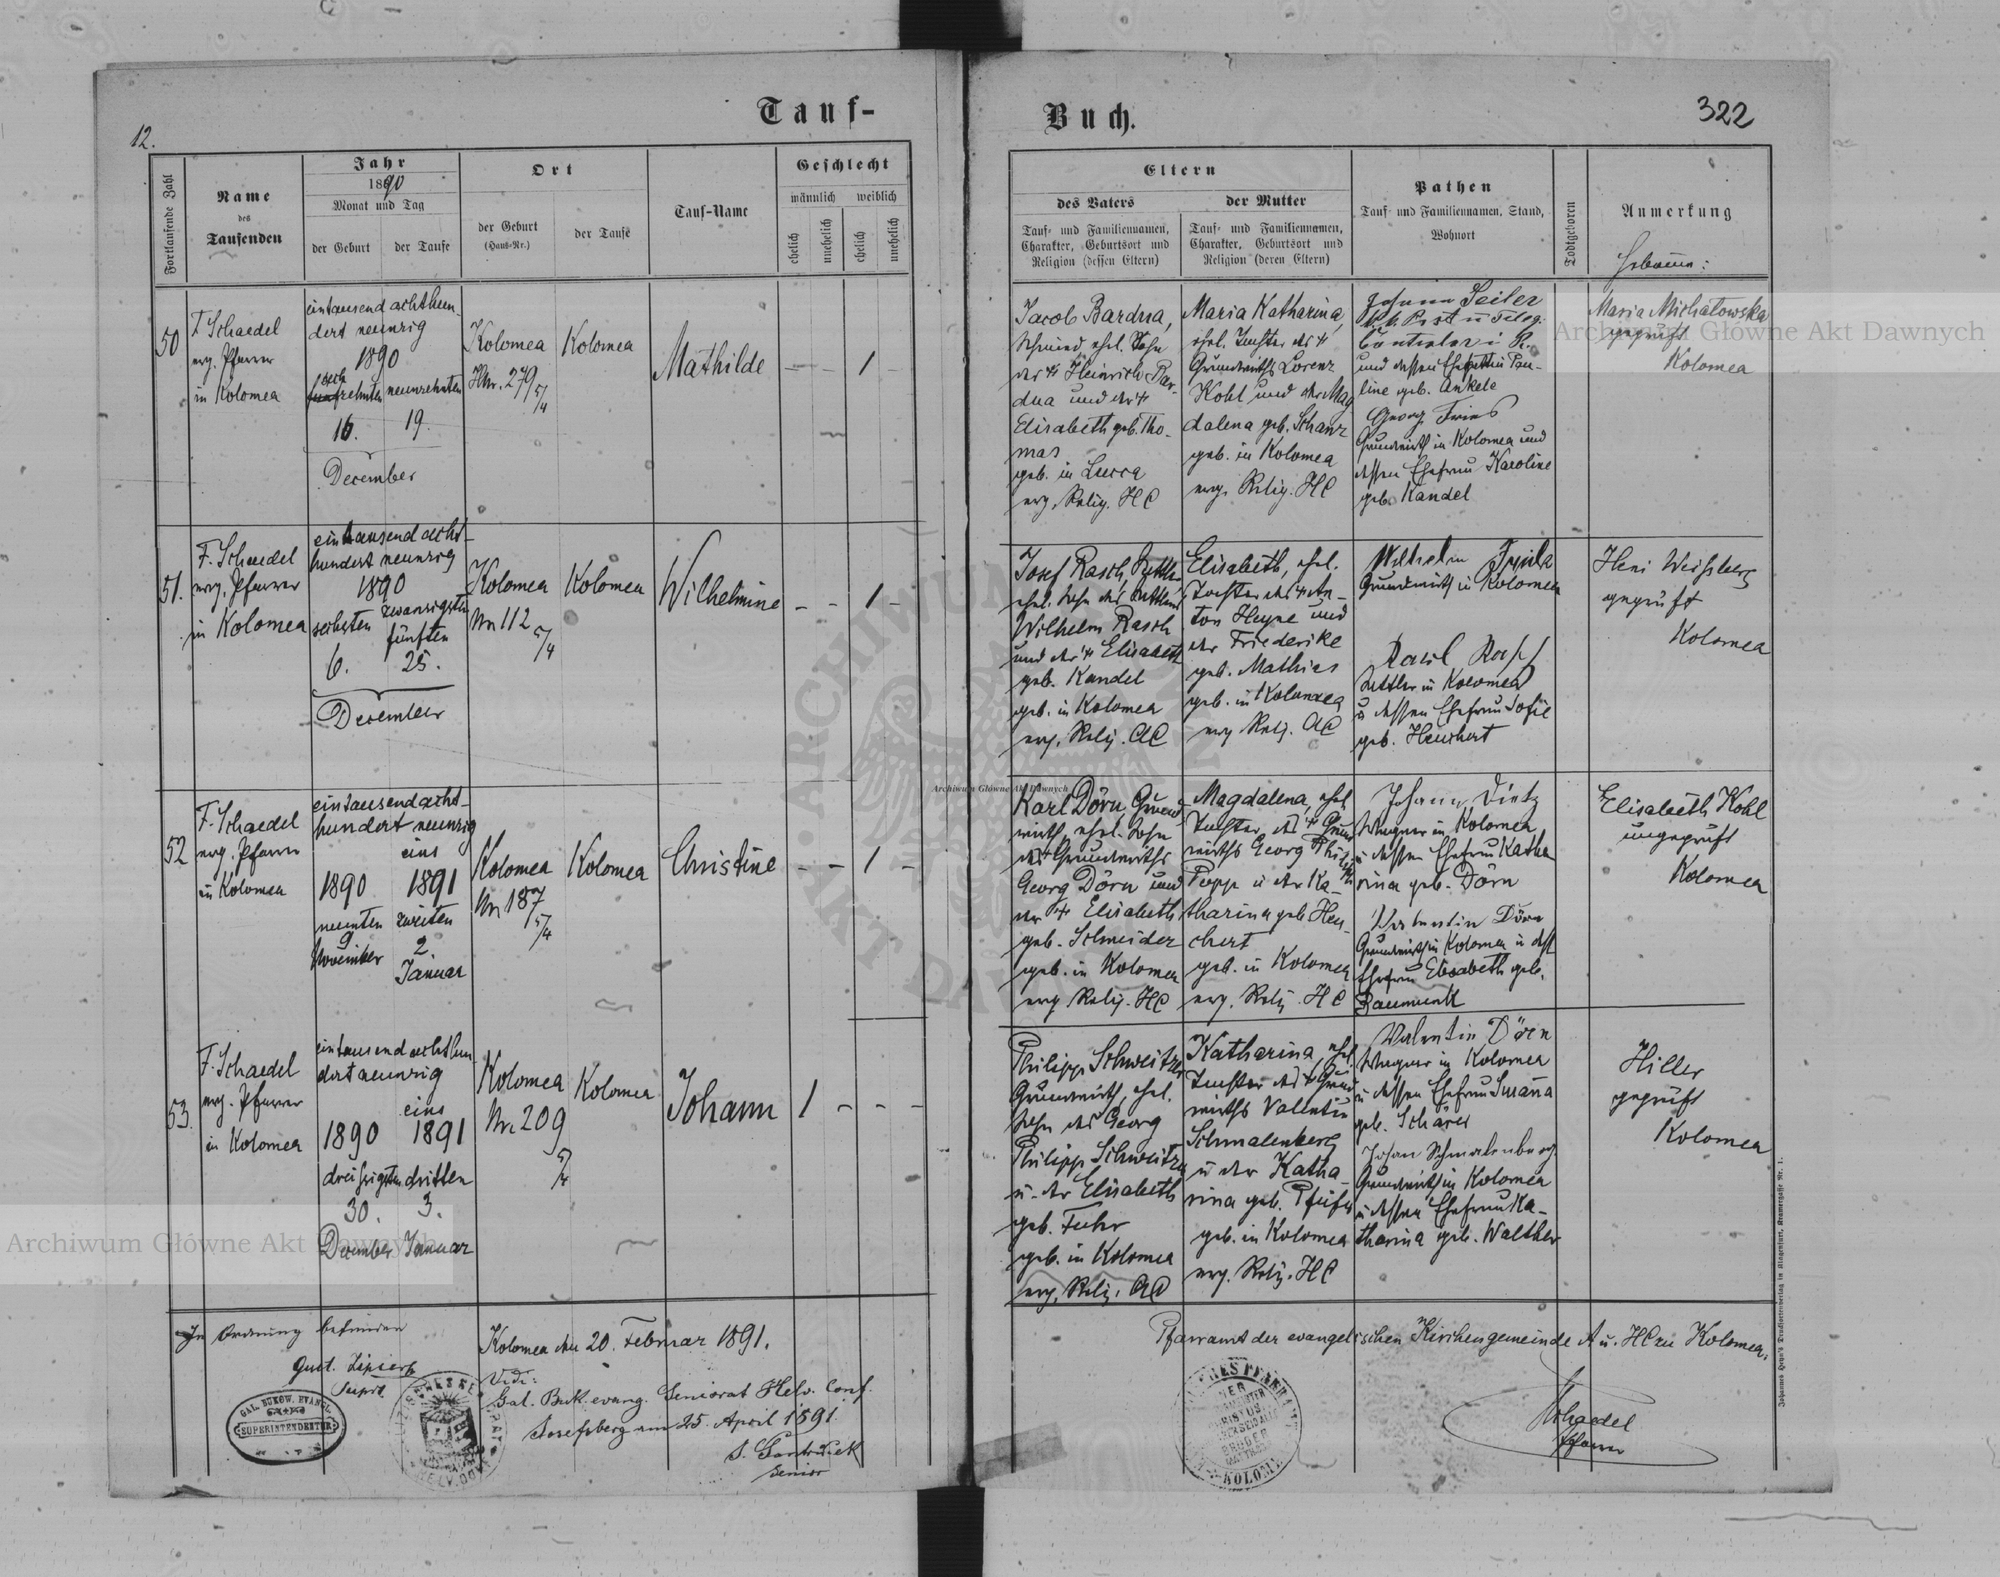 12.
Tauf-
Fortlaufende Zahl
Name
des
Taufenden
Jahr
1890
Monat und Tag
der Geburt
der Taufe
Ort
der Geburt
(Haus-Nr.)
der Taufe
Tauf-Name
Geschlecht
männlich
weiblich
ehelich
unehelich
ehelich
unehelich
50
F. Schaedel
evg. Pfarrer
in Kolomea
eintausend achthun-
dert neunzig
1890
sech
zehnten neunzehnten
16. 19.
December
Kolomea
Hnr. 279
5/4
Kolomea
Mathilde
— – 1 –
51.
F. Schaedel
evg. Pfarrer
in Kolomea
eintausend acht-
hundert neunzig
1890
sechsten zwanzigsten
fünften
6. 25.
December
Kolomea
Nr. 112
5/4
Kolomea
Wilhelmine
– – 1 –
52
F. Schaedel
evg. Pfarrer
in Kolomea
eintausend acht-
hundert neunzig
eins
1890 1891
neunten zweiten
9 2.
November Januar
Kolomea
Nr. 187
5/4
Kolomea
Christine
– – 1 –
53.
F. Schaedel
evg. Pfarrer
in Kolomea
eintausend achthun-
dert neunzig
eins
1890 1891
dreißigsten dritten
30. 3.
December Januar
Kolomea
Nr. 209
5/4
Kolomea
Johann
1 – – –
In Ordnung befunden
Gust.
Supdt.
GAL. BUKOW. EVANGL.
SUPERINTENDENTUR
Kolomea den 20. Februar 1891.
Vidi:
Gal. Buk. evang. Seniorat Helv. Conf.
Josefsberg am 25. April 1891.
Senior
Buch.
322
Eltern
des Vaters
Tauf- und Familiennamen,
Charakter, Geburtsort und
Religion (dessen Eltern)
der Mutter
Tauf- und Familiennamen,
Charakter, Geburtsort und
Religion (deren Eltern)
Pathen
Tauf- und Familiennamen, Stand,
Wohnort
Todtgeboren
Anmerkung
Hebamme:
Jacob Bardua,
Schmied ehel. Sohn
des † Heinrich Bar-
dua und der †
Elisabeth geb. Tho-
mas
geb. in
evg. Relig. HC
Maria Katharina,
ehel. Tochter des †
Grundwirths Lorenz
Kohl und der Mag
dalena geb. Schanz
geb. in Kolomea
evg. Relig. HC
Johann Seiler
k.k. Post u Teleg.
Controlor i. R.
und dessen Ehegattin Pau-
line geb. Ankele
Georg Fries
Grundwirth in Kolomea und
dessen Ehefrau Karoline
geb. Kandel
Maria Michalowska
geprüft
Kolomea
Josef Rasch,
ehel. Sohn des
Wilhelm Rasch
und der † Elisabeth
geb. Kandel
geb. in Kolomea
evg. Relig. AC
Elisabeth, ehel.
Tochter des † An-
ton Heyne und
der Friederike
geb. Mathies
geb. in Kolomea
evg Relig. AC
Wilhelm
Grundwirth in Kolomea
Karl
in Kolomea
u dessen Ehefrau Sofie
geb. Heuchert
Heni Weissberg
geprüft
Kolomea
Karl Dörn Grund-
wirth, ehel. Sohn
des † Grundwirths
Georg Dörn und
der † Elisabeth
geb. Schneider
geb. in Kolomea
evg Relig. HC
Magdalena, ehel
Tochter des † Grund
wirths Georg
Popp u der Ka-
tharina geb. Heu-
chert
geb. in Kolomea
evg. Relig. HC
Johann Dietz
Wagner in Kolomea
u dessen Ehefrau Katha
rina geb. Dörn
Valentin Dörn
Grundwirth in Kolomea u dess
Ehefrau Elisabeth geb.
Baumunk
Elisabeth Kohl
ungeprüft
Kolomea
Philipp Schweitzer
Grundwirth, ehel.
Sohn des Georg
Philipp Schweitzer
u. der Elisabeth
geb. Fuhr
geb. in Kolomea
evg. Relig. AC
Katharina, ehel
Tochter des † Grund
wirths Valentin
Schmalenberg
u der Katha-
rina geb. Pfeifer
geb. in Kolomea
evg. Relig. HC
Valentin Dörn
Wagner in Kolomea
u dessen Ehefrau Susanna
geb. Schärer
Johan Schmalenberg
Grundwirth in Kolomea
u dessen Ehefrau Ka-
tharina geb. Walther
Hiller
geprüft
Kolomea
Pfarramt der evangelischen Kirchengemeinde A u. HC zu Kolomea.
Schaedel
Pfarrer
KOLOMEA
Johannes Heyn's Drucksortenverlag in Klagenfurt, Kramergasse Nr. 1.
Archiwum Główne Akt Dawnych
Archiwum Główne Akt Dawnych
Archiwum Główne Akt Dawnych